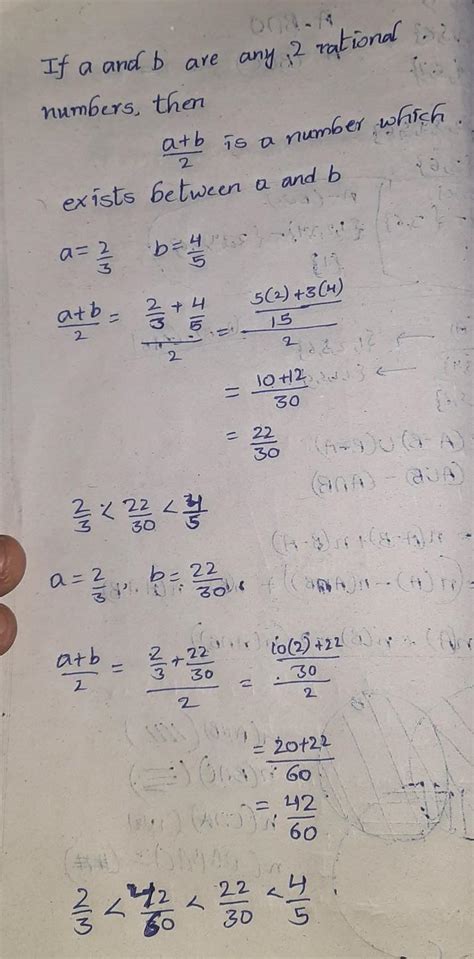 If a and b are any 2 rational
numbers, then
a+b/2 is a number which
exists between a and b
a=2/3 b=4/5
a+b/2 = (2/3 + 4/5)/2 = ((5(2)+3(4))/15)/2
= 10+12/30
= 22/30
2/3 < 22/30 < 4/5
a=2/3 b=22/30
a+b/2 = (2/3 + 22/30)/2 = ((10(2)+22)/30)/2
= 20+22/60
= 42/60
2/3 < 42/60 < 22/30 < 4/5